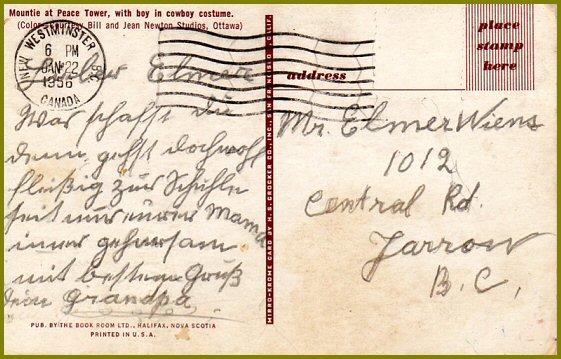 Mountie at Peace Tower, with boy in cowboy costume.
(Color Courtesy Bill and Jean Newton Studios, Ottawa)
NEW WESTMINSTER
6 PM
JAN 22
1956
CANADA
place
stamp
here
address
Lieber Elmer
Was schafft du
denn, gehst doch wohl
fleißig zur Schuhle
seit nur eurer Mama
imer gehorsam
mit bestem Gruß
dein Grandpa
Mr. Elmer Wiens
1012
Central Rd.
Yarrow
B.C.
MIRRO-KROME CARD BY H. S. CROCKER CO., INC., SAN FRANCISCO, CALIF.
PUB. BY THE BOOK ROOM LTD., HALIFAX, NOVA SCOTIA
PRINTED IN U.S.A.